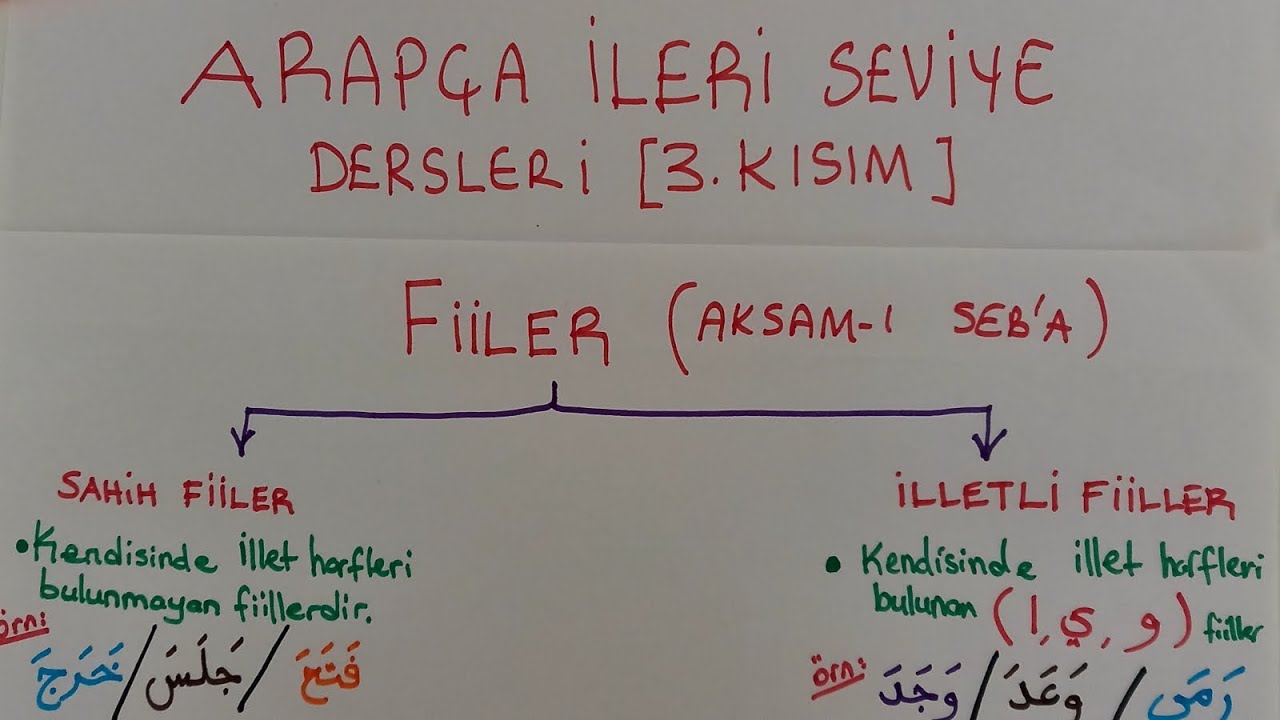 ARAPÇA İLERİ SEVİYE
DERSLERİ [3.KISIM]
FİİLER (AKSAM-I SEB'A)
SAHİH FİİLER
• Kendisinde illet harfleri
bulunmayan fiillerdir.
örn:
فَتَحَ / جَلَسَ / خَرَجَ
İLLETLİ FİİLLER
• Kendisinde illet harfleri
bulunan (و ,ي ,ا) fiiller
örn:
رَمَى / وَعَدَ / وَجَدَ